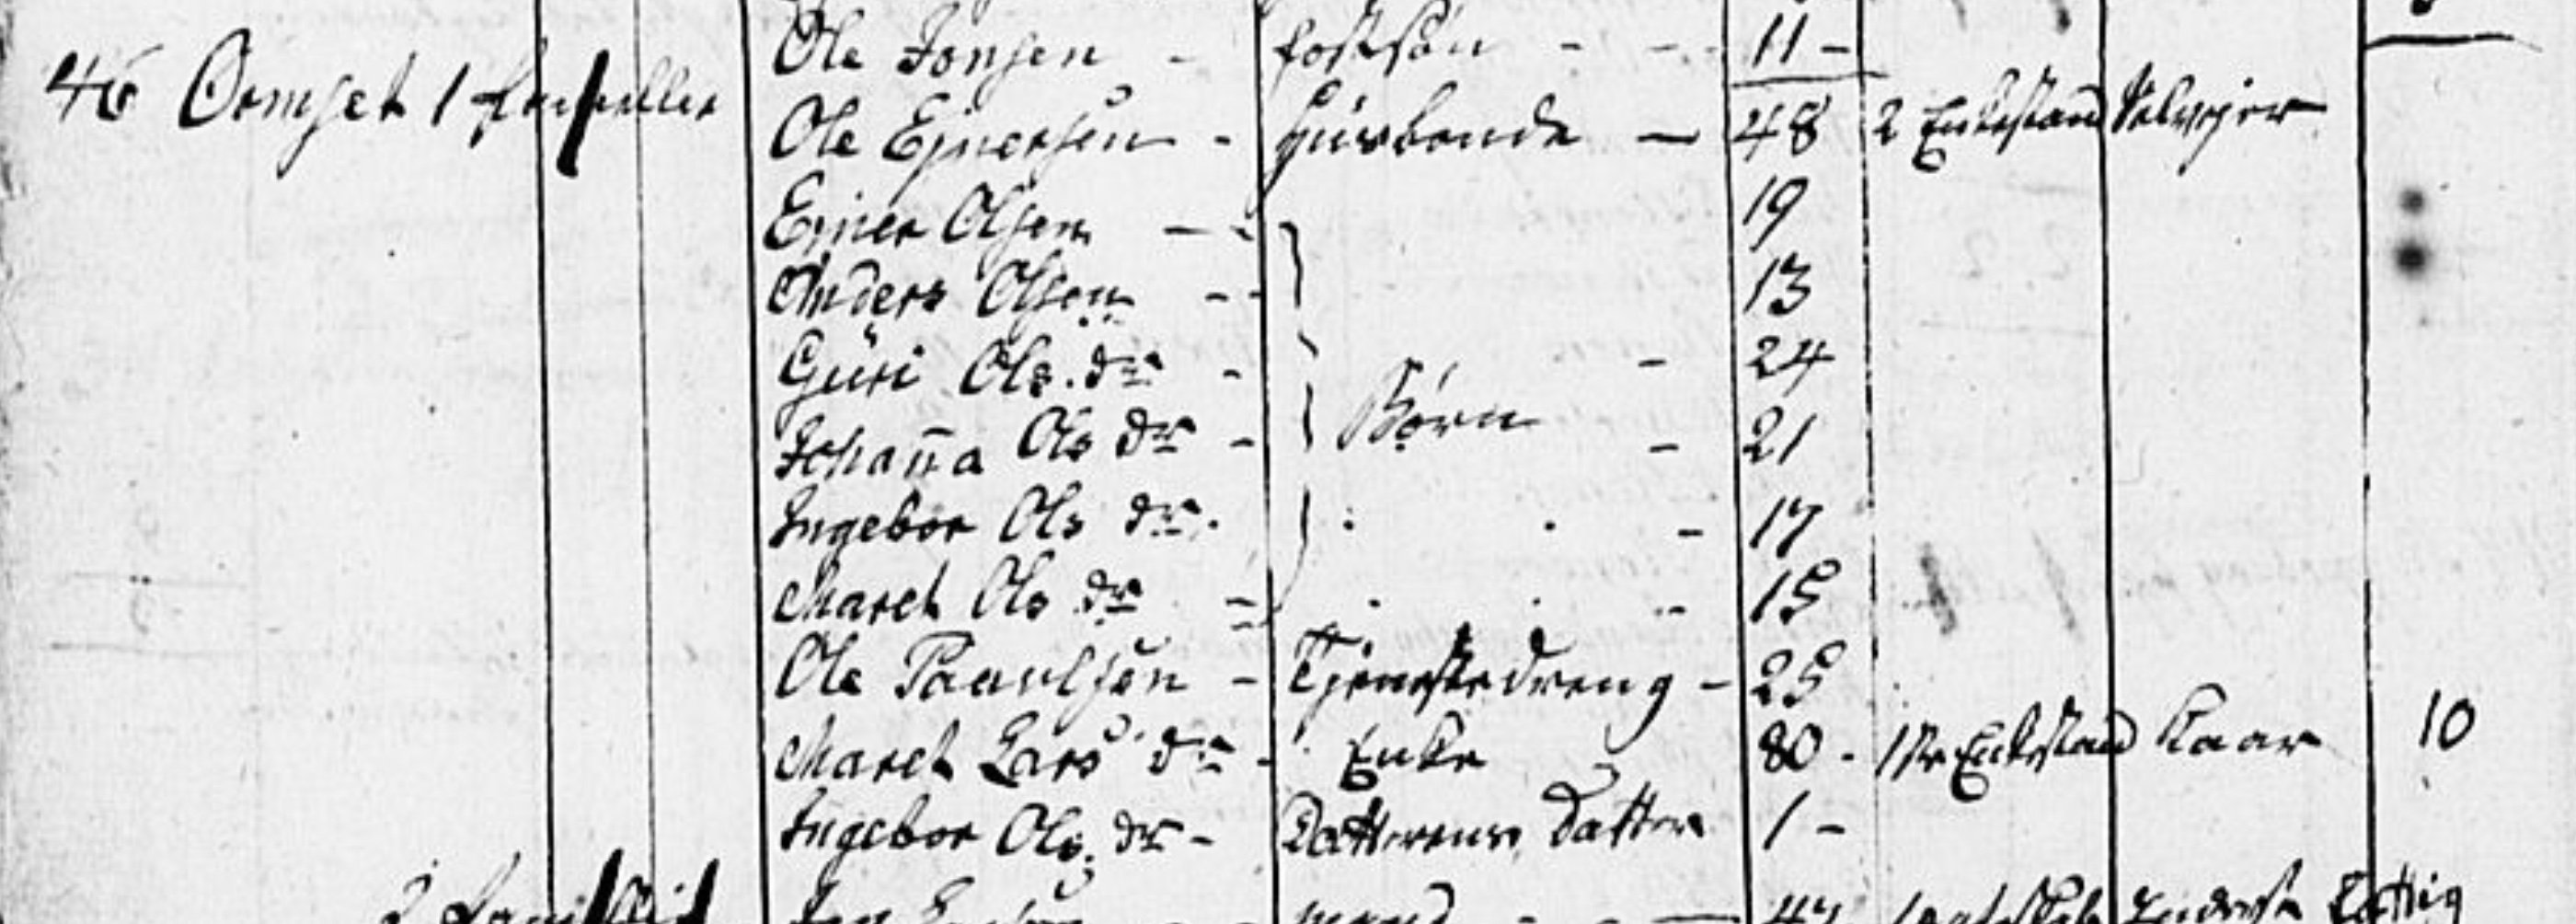 Ole Jonsen - Fostsøn - - 11 -
46 Ormset 1 famillie Ole Ejnersen - Husbonde - 48 2 Enkestand Selvejer
Ejner Olsen - 19
Anders Olsen - - 13
Guri Ols. dr - - 24
Johan̄a Ols dr - Børn - 21
Ingebor Ols dr. - 17
Maret Ols dr - 15
Ole Paavelsen - Tjenestedreng - 25
Maret Lars dr - Enke 80 - 1ste Enkestand Kaar 10
Ingebor Ols. dr - Datterens Datter 1 -
2 famillie mand